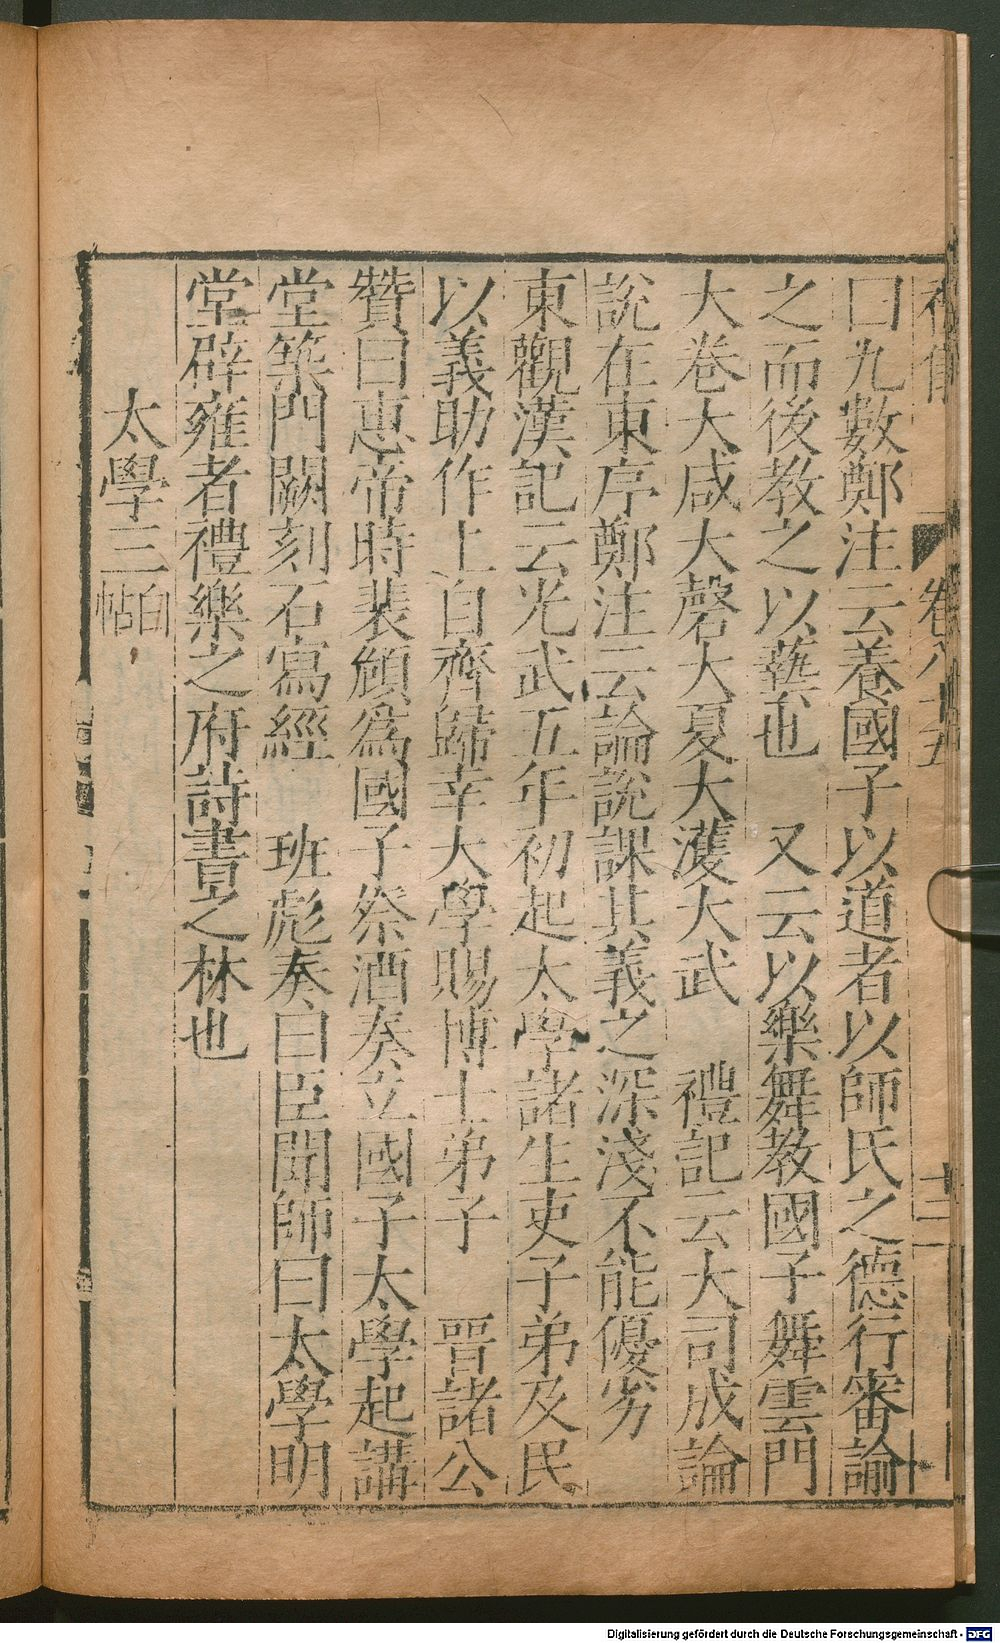 卷八十五
十二
曰九數鄭注云養國子以道者以師氏之德行審諭
之而後教之以藝也　又云以樂舞教國子舞雲門
大卷大咸大磬大夏大濩大武　禮記云大司成論
說在東序鄭注云論說課其義之深淺不能優劣
東觀漢記云光武五年初起太學諸生吏子弟及民
以義助作上自齊歸幸大學賜博士弟子　晉諸公
贊曰惠帝時裴頠爲國子祭酒奏立國子太學起講
堂築門闕刻石寫經　班彪奏曰臣聞師曰太學明
堂辟雍者禮樂之府詩書之林也
太學三白帖
Digitalisierung gefördert durch die Deutsche Forschungsgemeinschaft - DFG